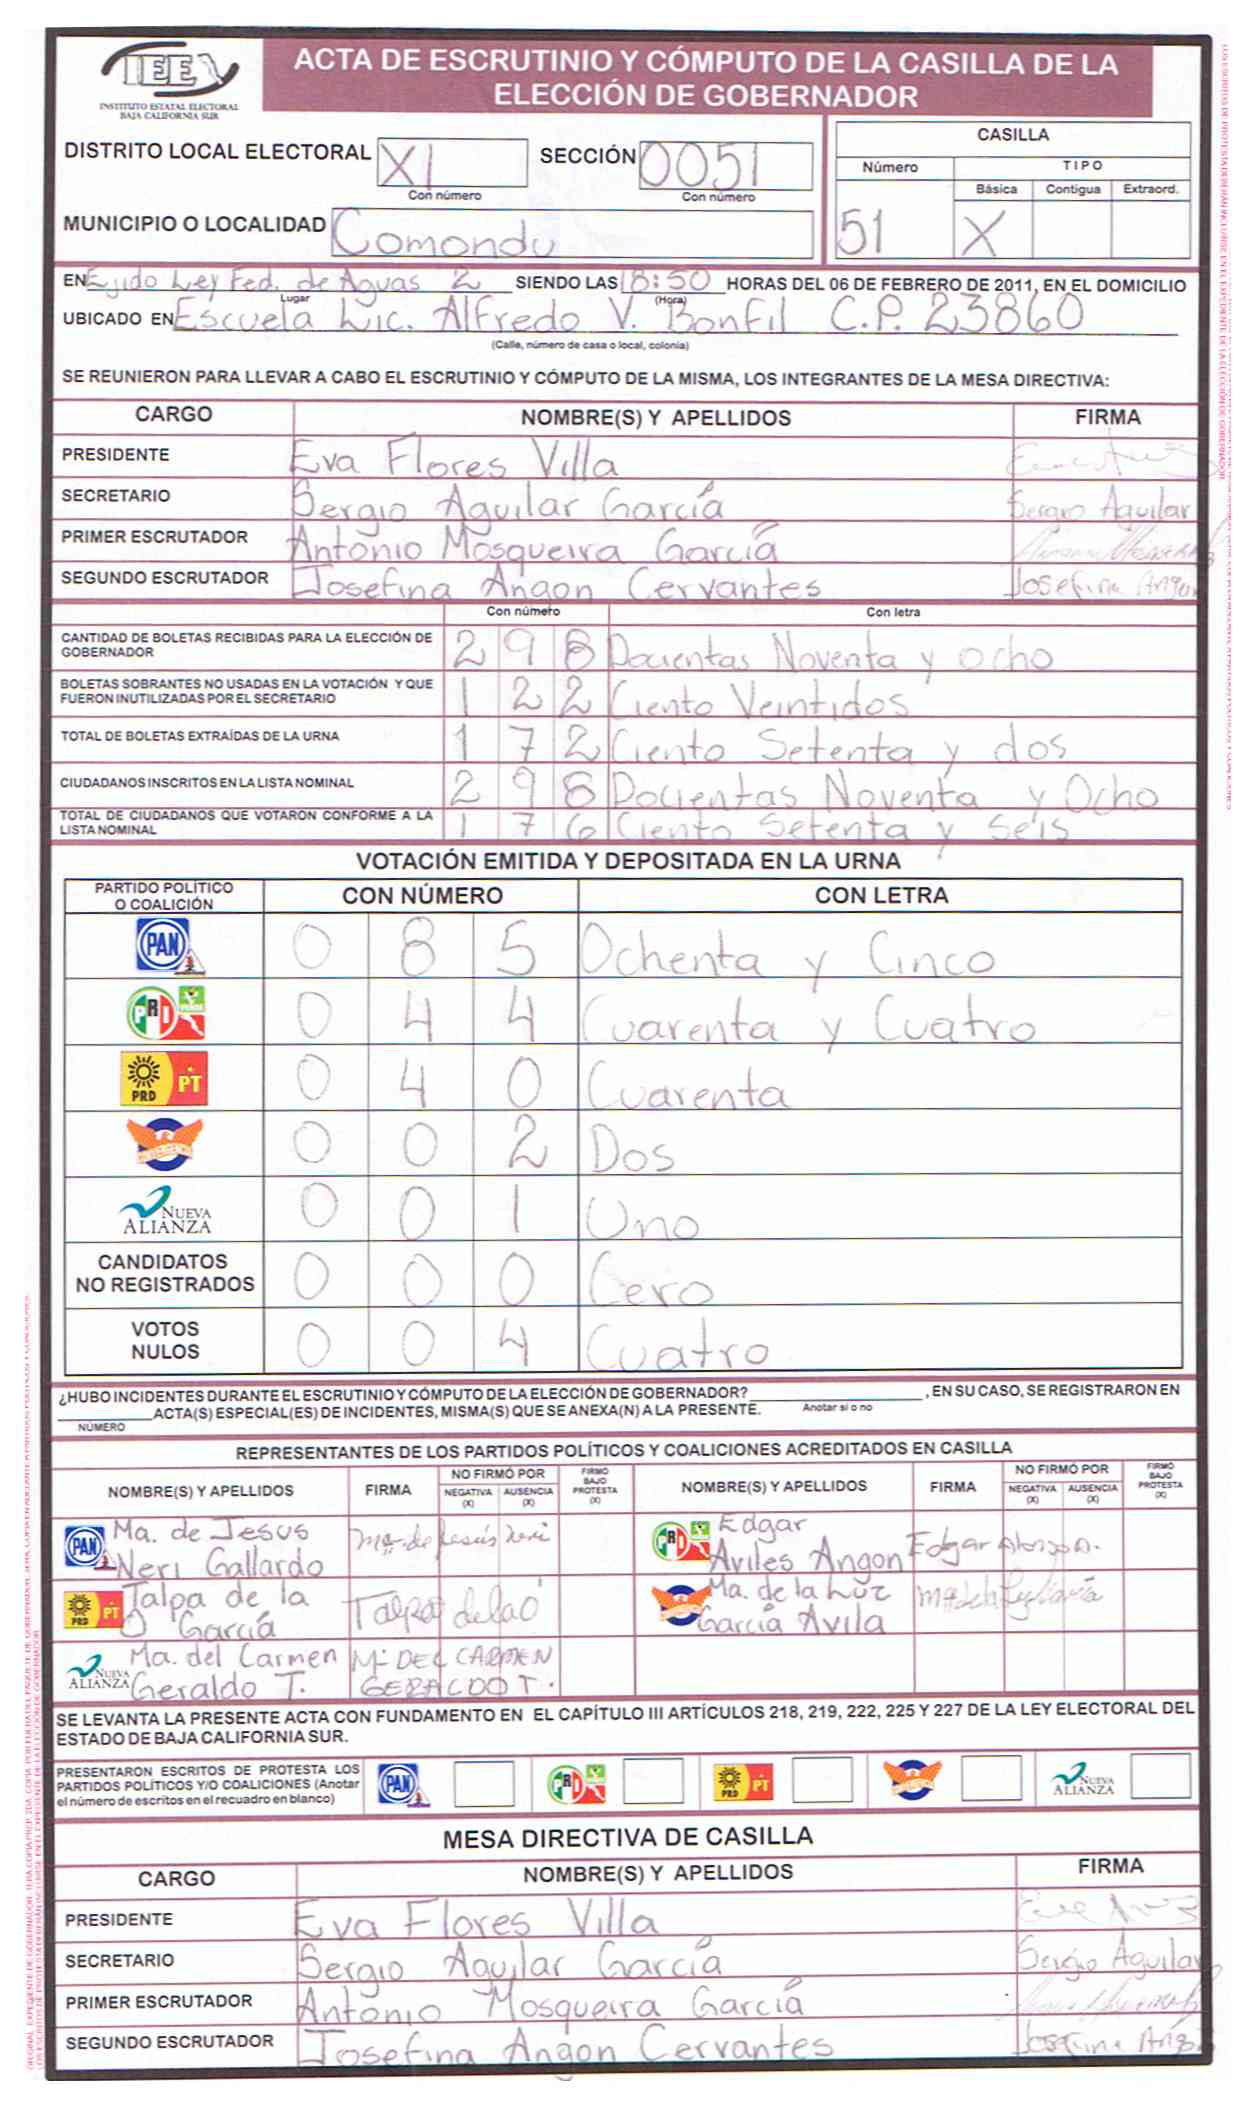 IEE
INSTITUTO ESTATAL ELECTORAL
BAJA CALIFORNIA SUR
ACTA DE ESCRUTINIO Y CÓMPUTO DE LA CASILLA DE LA
ELECCIÓN DE GOBERNADOR
DISTRITO LOCAL ELECTORAL XI SECCIÓN 0051
Con número Con número
MUNICIPIO O LOCALIDAD Comondu
CASILLA
Número TIPO
Básica Contigua Extraord.
51 X
EN Ejido Ley Fed. de Aguas 2 SIENDO LAS 18:50 HORAS DEL 06 DE FEBRERO DE 2011, EN EL DOMICILIO
Lugar (Hora)
UBICADO EN Escuela Lic. Alfredo V. Bonfil C.P. 23860
(Calle, número de casa o local, colonia)
SE REUNIERON PARA LLEVAR A CABO EL ESCRUTINIO Y CÓMPUTO DE LA MISMA, LOS INTEGRANTES DE LA MESA DIRECTIVA:
CARGO NOMBRE(S) Y APELLIDOS FIRMA
PRESIDENTE Eva Flores Villa
SECRETARIO Sergio Aguilar García Sergio Aguilar
PRIMER ESCRUTADOR Antonio Mosqueira García
SEGUNDO ESCRUTADOR Josefina Angon Cervantes Josefina Angon
Con número Con letra
CANTIDAD DE BOLETAS RECIBIDAS PARA LA ELECCIÓN DE
GOBERNADOR 2 9 8 Docientas Noventa y ocho
BOLETAS SOBRANTES NO USADAS EN LA VOTACIÓN Y QUE
FUERON INUTILIZADAS POR EL SECRETARIO 1 2 2 Ciento Veintidos
TOTAL DE BOLETAS EXTRAÍDAS DE LA URNA 1 7 2 Ciento Setenta y dos
CIUDADANOS INSCRITOS EN LA LISTA NOMINAL 2 9 8 Docientas Noventa y Ocho
TOTAL DE CIUDADANOS QUE VOTARON CONFORME A LA
LISTA NOMINAL 1 7 6 Ciento Setenta y Seis
VOTACIÓN EMITIDA Y DEPOSITADA EN LA URNA
PARTIDO POLÍTICO
O COALICIÓN CON NÚMERO CON LETRA
PAN 0 8 5 Ochenta y Cinco
PRI VERDE 0 4 4 Cuarenta y Cuatro
PRD PT 0 4 0 Cuarenta
CONVERGENCIA 0 0 2 Dos
NUEVA
ALIANZA 0 0 1 Uno
CANDIDATOS
NO REGISTRADOS 0 0 0 Cero
VOTOS
NULOS 0 0 4 Cuatro
¿HUBO INCIDENTES DURANTE EL ESCRUTINIO Y CÓMPUTO DE LA ELECCIÓN DE GOBERNADOR? , EN SU CASO, SE REGISTRARON EN
ACTA(S) ESPECIAL(ES) DE INCIDENTES, MISMA(S) QUE SE ANEXA(N) A LA PRESENTE. Anotar si o no
NÚMERO
REPRESENTANTES DE LOS PARTIDOS POLÍTICOS Y COALICIONES ACREDITADOS EN CASILLA
NOMBRE(S) Y APELLIDOS FIRMA NO FIRMÓ POR NEGATIVA (X) AUSENCIA (X) FIRMÓ BAJO PROTESTA (X) NOMBRE(S) Y APELLIDOS FIRMA NO FIRMÓ POR NEGATIVA (X) AUSENCIA (X) FIRMÓ BAJO PROTESTA (X)
PAN Ma. de Jesus Ma. de Jesús Neri PRI Edgar Edgar Alonzo A.
Neri Gallardo Aviles Angon
PRD PT Talpa de la Talpa de la O Ma. de la Luz
O García García Avila
NUEVA
ALIANZA Ma. del Carmen Ma DEL CARMEN
Geraldo T. GERALDO T.
SE LEVANTA LA PRESENTE ACTA CON FUNDAMENTO EN EL CAPÍTULO III ARTÍCULOS 218, 219, 222, 225 Y 227 DE LA LEY ELECTORAL DEL
ESTADO DE BAJA CALIFORNIA SUR.
PRESENTARON ESCRITOS DE PROTESTA LOS
PARTIDOS POLÍTICOS Y/O COALICIONES (Anotar
el número de escritos en el recuadro en blanco) PAN PRI PRD PT NUEVA ALIANZA
MESA DIRECTIVA DE CASILLA
CARGO NOMBRE(S) Y APELLIDOS FIRMA
PRESIDENTE Eva Flores Villa
SECRETARIO Sergio Aguilar García Sergio Aguilar
PRIMER ESCRUTADOR Antonio Mosqueira García
SEGUNDO ESCRUTADOR Josefina Angon Cervantes Josefina Angon